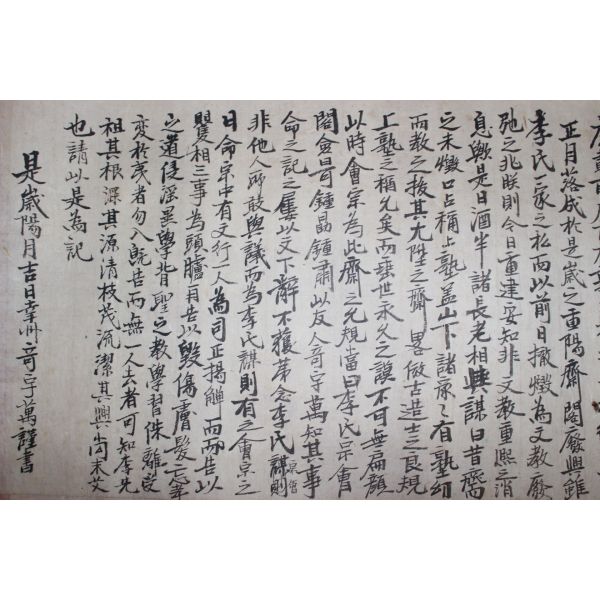 正月落成於是歲之重陽齋閣廢興雖
李氏一家之私而以前日撤燬為文教廢
弛之兆朕則今日重建安知非文教重熙之消
息歟是日酒半諸長老相與謀曰昔齋
之未燬口占稱上塾益山下諸原之有塾
而教之拔其尤陞之齋畧倣古造士之良規
上塾之稱允矣而垂世承久之謨不可無扁顏
以時會宗為此齋之元規當曰李氏宗會
閣僉哥鍾晶鍾肅以友人奇宇萬知其事
命之記之屢以文下辭不獲第念李氏謀則
非他人所敢與議而為李氏謀則有之會宗之
日命宗中有文行一人為司正揚觶而命告以
矍相三事為頭臚月告以毀傷膚髮忘君
之道侵淫異學背聖之教學習侏離
變於夷者勿入既告而無一人去者可知李先
祖其根深其源清枝茂流潔其興尚未艾
也請以是為記
是歲陽月吉日幸州奇宇萬謹書